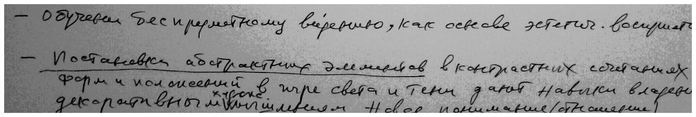 – Обучение беспредметному видению, как основе эстетич. восприят
– Постановки абстрактных элементов в контрастных сочетаниях
форм и положений в игре света и тени дают навыки владен
декоративным мышлением новое понимание (отношение)